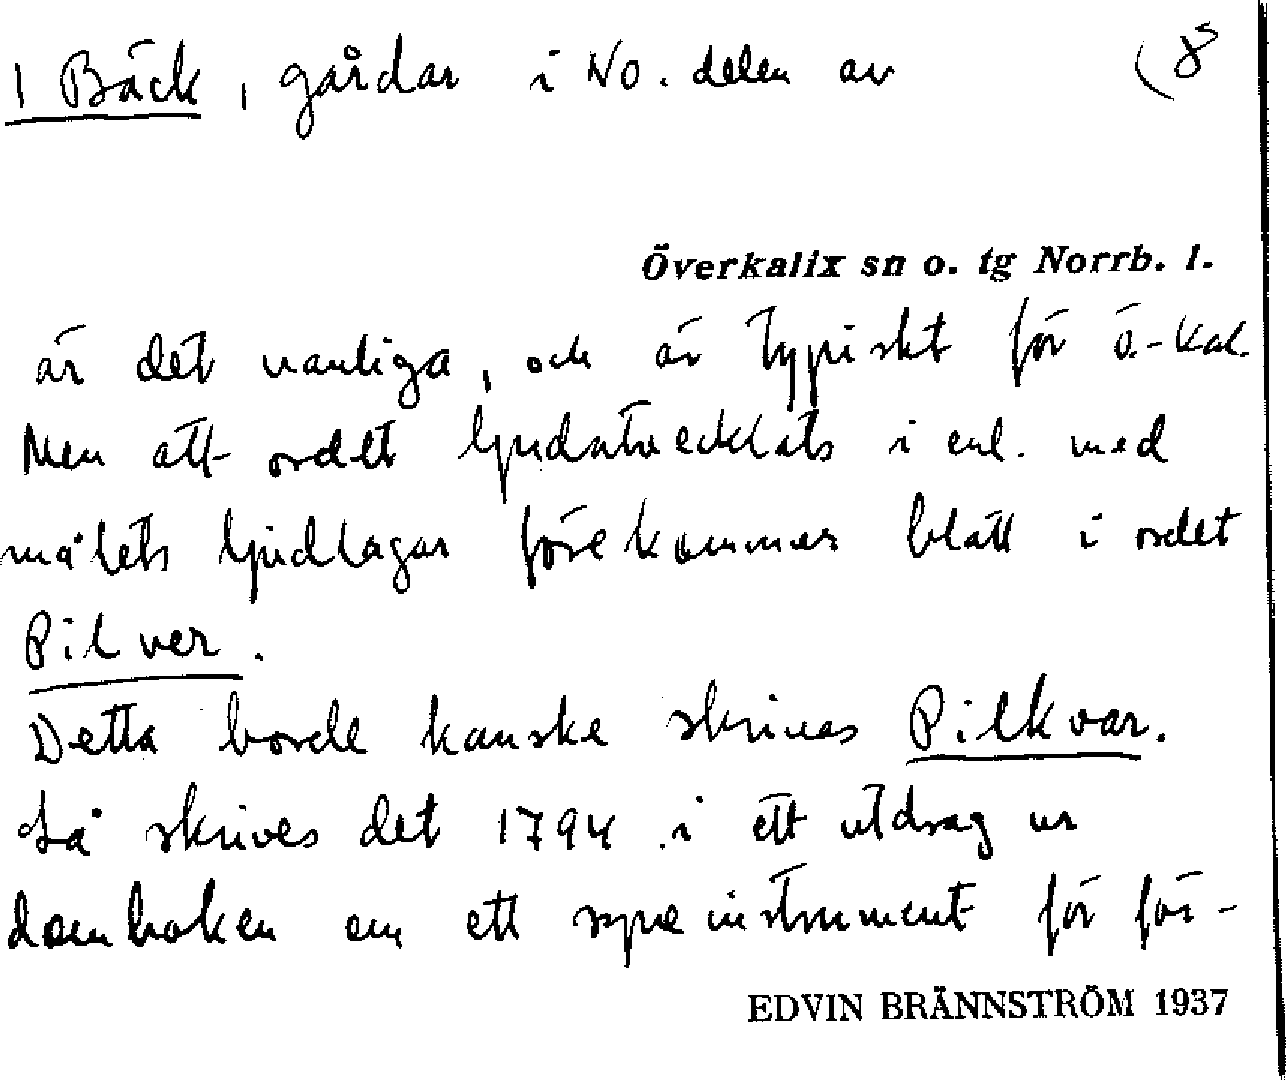 1 Bäck, gårdar i NO. delen av (8
Överkalix sn o. tg Norrb. l.
är det vanliga, och är typiskt för ö.-kal.
Men att ordet ljudutvecklats i enl. med
målets ljudlagar förekommer blott i ordet
Pilver.
Detta borde kanske skrivas Pilkvar.
Så skrives det 1794 i ett utdrag ur
domboken om ett syneinstrument för för-
EDVIN BRÄNNSTRÖM 1937